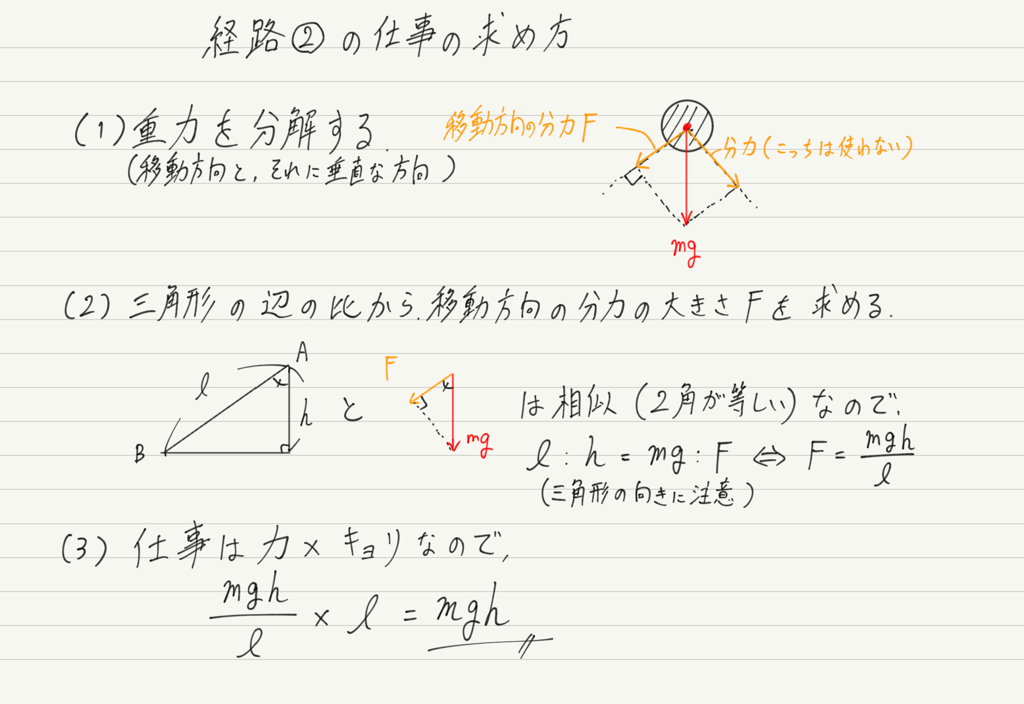 経路②の仕事の求め方
(1)重力を分解する.
(移動方向と,それに垂直な方向)
移動方向の分力F
分力(こっちは使わない)
mg
(2)三角形の辺の比から,移動方向の分力の大きさFを求める.
A
l
h
B
と
F
mg
は相似(2角が等しい)なので,
l:h=mg:F⇔F=mgh/l
(三角形の向きに注意)
(3)仕事は力×キョリなので,
mgh/l×l=mgh